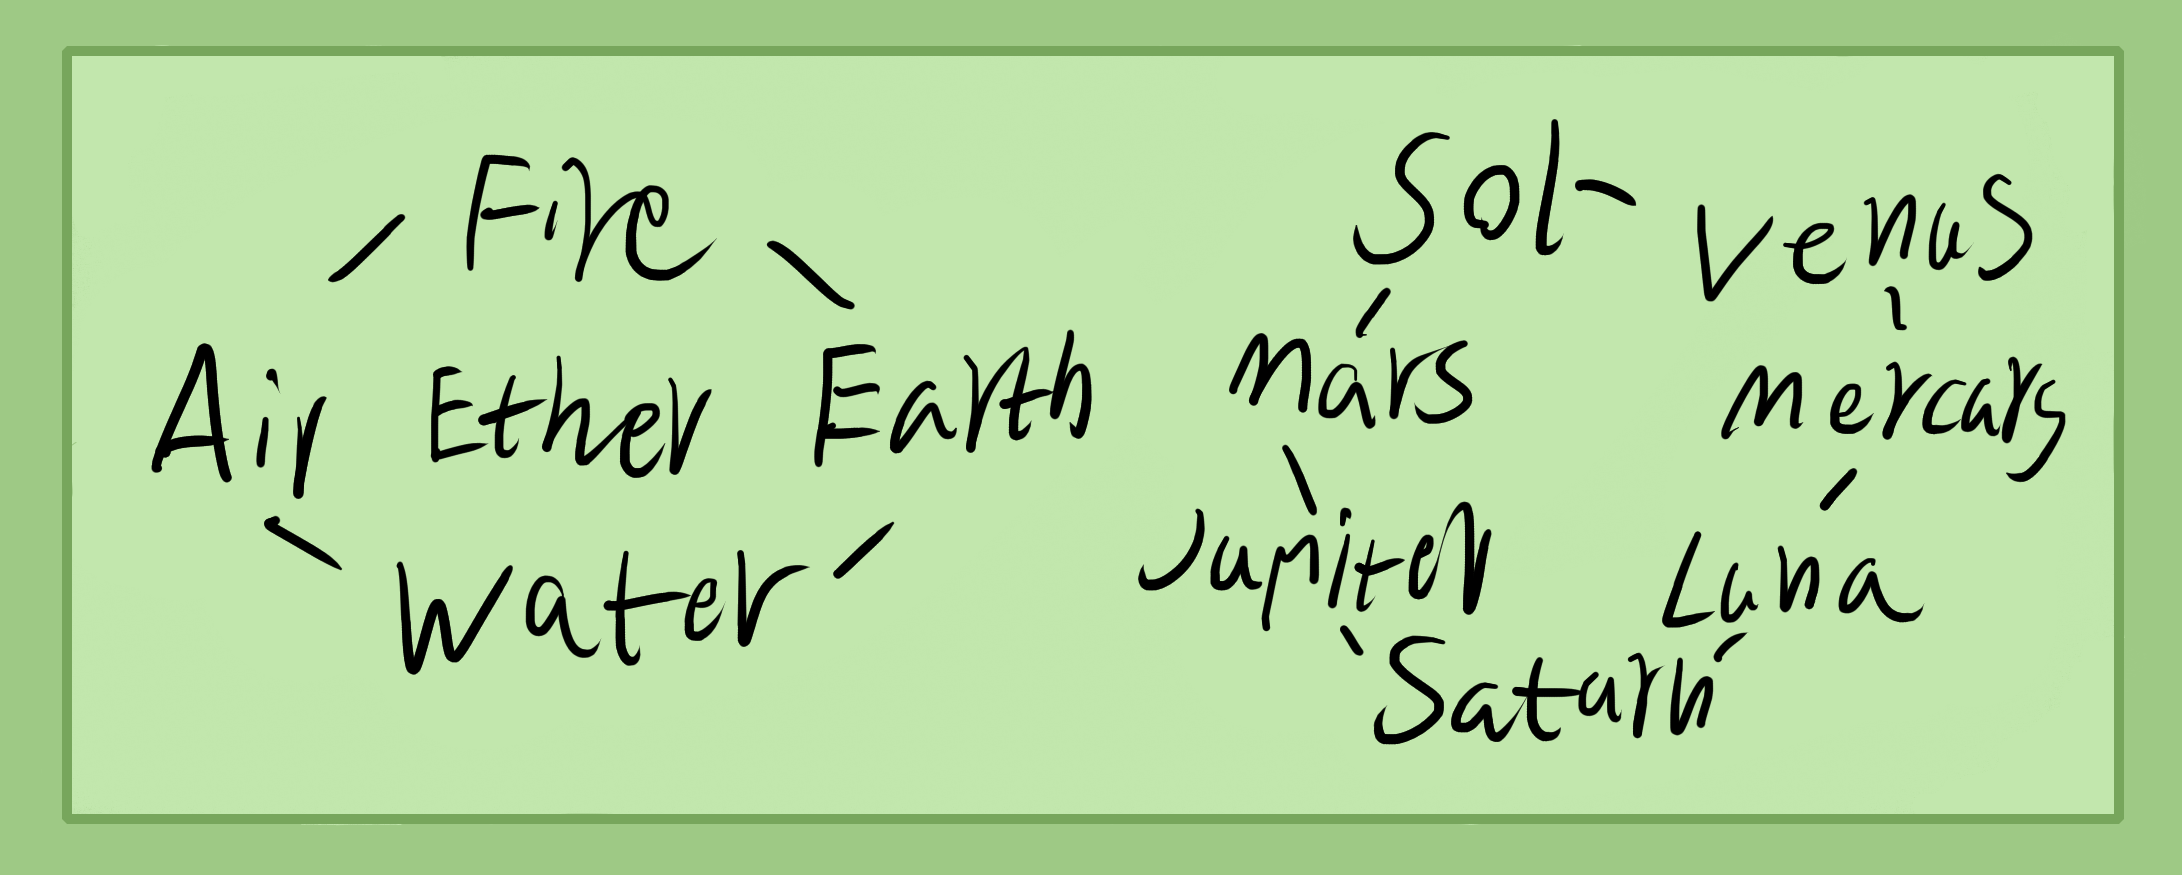 Fire
Air Ether Earth
Water
Sol Venus
Mars Mercury
Jupiter Luna
Saturn